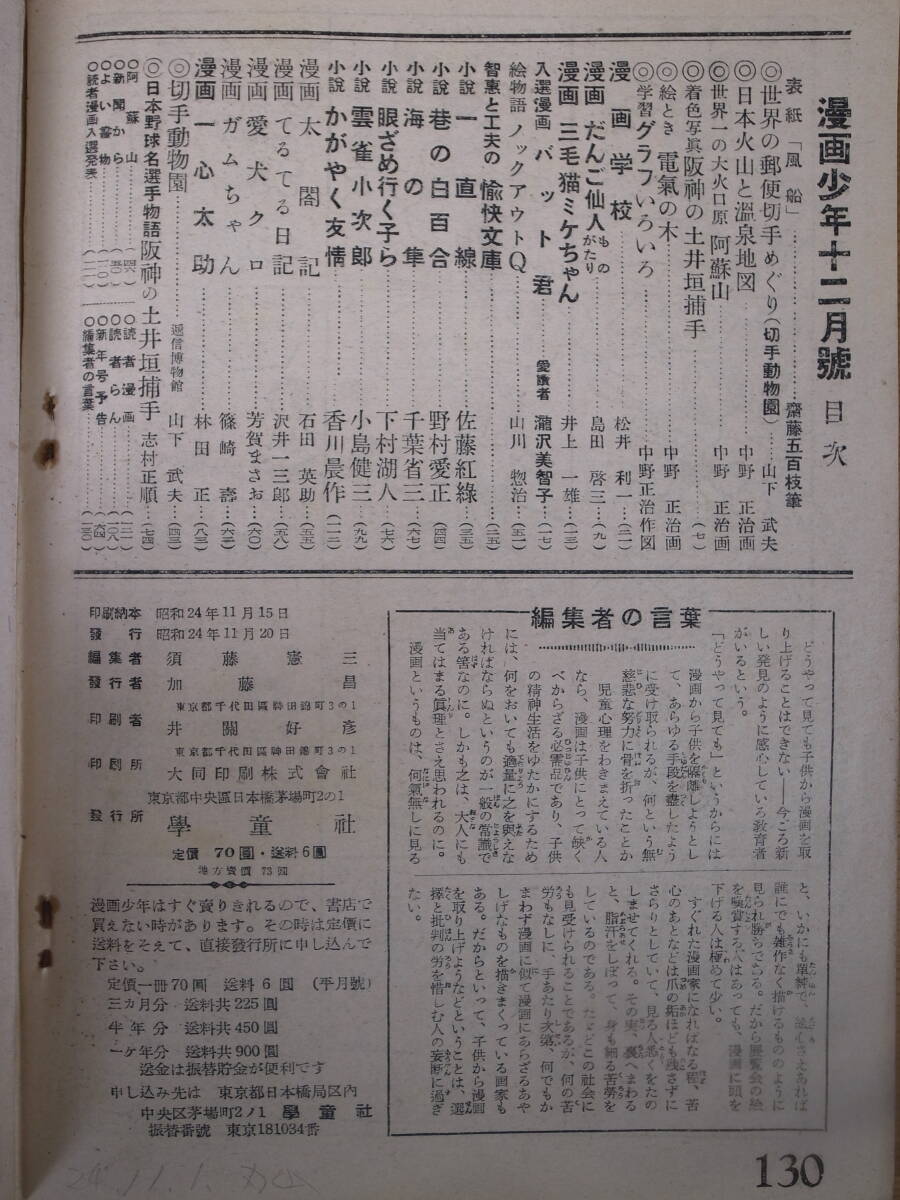 漫画少年十二月號 目次
表紙「風船」…………齋藤五百枝筆
◎世界の郵便切手めぐり(切手動物園)……山下 武夫
◎日本火山と溫泉地図……中野 正治画
◎世界一の大火口原 阿蘇山……中野 正治画
◎着色写眞 阪神の土井垣捕手……(七)
◎絵とき 電氣の木……中野 正治画
◎学習グラフいろいろ……中野正治作図
漫画 学校……松井 利一…(三一)
漫画 だんご仙人ものがたり……島田 啓三…(九)
漫画 三毛猫ミケちゃん……井上 一雄…(一三)
入選漫画 バット君……愛讀者 瀧沢美智子…(一七)
絵物語 ノックアウトQ……山川 惣治…(五二)
智惠と工夫の 愉快文庫……(二五)
小說 一直線……佐藤紅綠…(三五)
小說 巷の白百合……野村愛正…(四四)
小說 海の隼……千葉省三…(六七)
小說 眼ざめ行く子ら……下村湖人…(七六)
小說 雲雀小次郎……小島健三…(九九)
小說 かがやく友情……香川晨作…(一一三)
漫画 太閤記……石田 英助…(五五)
漫画 てるてる日記……沢井一三郎…(五八)
漫画 愛犬クロ……芳賀まさお…(六〇)
漫画 ガムちゃん……篠崎 壽…(六三)
漫画 一心太助……林田 正…(八三)
◎切手動物園……遞信博物館 山下 武夫…(四三)
◎日本野球名選手物語 阪神の土井垣捕手 志村正順…(七四)
○阿蘇山……(四)
○新聞から……(五〇)
○よい書物……(一一〇)
○読者漫画入選発表……(一一一)
○読者漫画……(三一)
○読者らん……(一二八)
○新年号予告……(六四)
○編集者の言葉……(一三〇)
編集者の言葉
どうやって見ても子供から漫画を取
り上げることはできない——今ごろ新
しい発見のように感心している敎育者
がいるという。
「どうやって見ても」というからには
漫画から子供を隔離しようとし
て、あらゆる手段を盡したよう
に受け取られるが、何という無
慈悲な努力に骨を折ったことか
児童心理をわきまえている人
なら、漫画は子供にとって缺く
べからざる必需品であり、子供
の精神生活をゆたかにするため
には、何をおいても適量に之を與えな
ければならぬというのが一般の常識で
ある筈なのに。しかも之は、大人にも
当てはまる眞理とさえ思われるのに。
漫画というものは、何氣無しに見る
と、いかにも單純で、絵心さえあれば
誰にでも雑作なく描けるもののように
見られ勝ちである。だから展覧会の絵
を嘆賞する人はあっても、漫画に頭を
下げる人は極めて少い。
すぐれた漫画家になればなる程、苦
心のあとなどは爪の垢ほども残さずに
さらりとしていて、見る人悉くをたの
しませてくれる。その実、裏へまわる
と、脂汗をしぼって、身も細る苦労を
しているのである。ただどこの社会に
も見受けられることであるが、何の苦
労もなしに、手あたり次第、何でもか
まわず漫画に似て漫画にあらざるあや
しげなものを描きまくっている画家も
ある。だからといって、子供から漫画
を取り上げようなどということは、選
擇と批判の労を惜しむ人の妄断に過ぎ
ない。
印刷納本 昭和24年11月15日
發行 昭和24年11月20日
編集者 須藤憲三
發行者 加藤昌
東京都千代田區神田錦町3の1
印刷者 井關好彦
東京都千代田區神田錦町3の1
印刷所 大同印刷株式會社
東京都中央區日本橋茅場町2の1
發行所 學童社
定價 70圓・送料6圓
地方賣價 73圓
漫画少年はすぐ賣りきれるので、書店で
買えない時があります。その時は定價に
送料をそえて、直接發行所に申し込んで
下さい。
定價一冊70圓 送料6圓 (平月號)
三カ月分 送料共225圓
半年分 送料共450圓
一ヶ年分 送料共900圓
送金は振替貯金が便利です
申し込み先は 東京都日本橋局区內
中央区茅場町2ノ1 學童社
振替番號 東京181034番
130